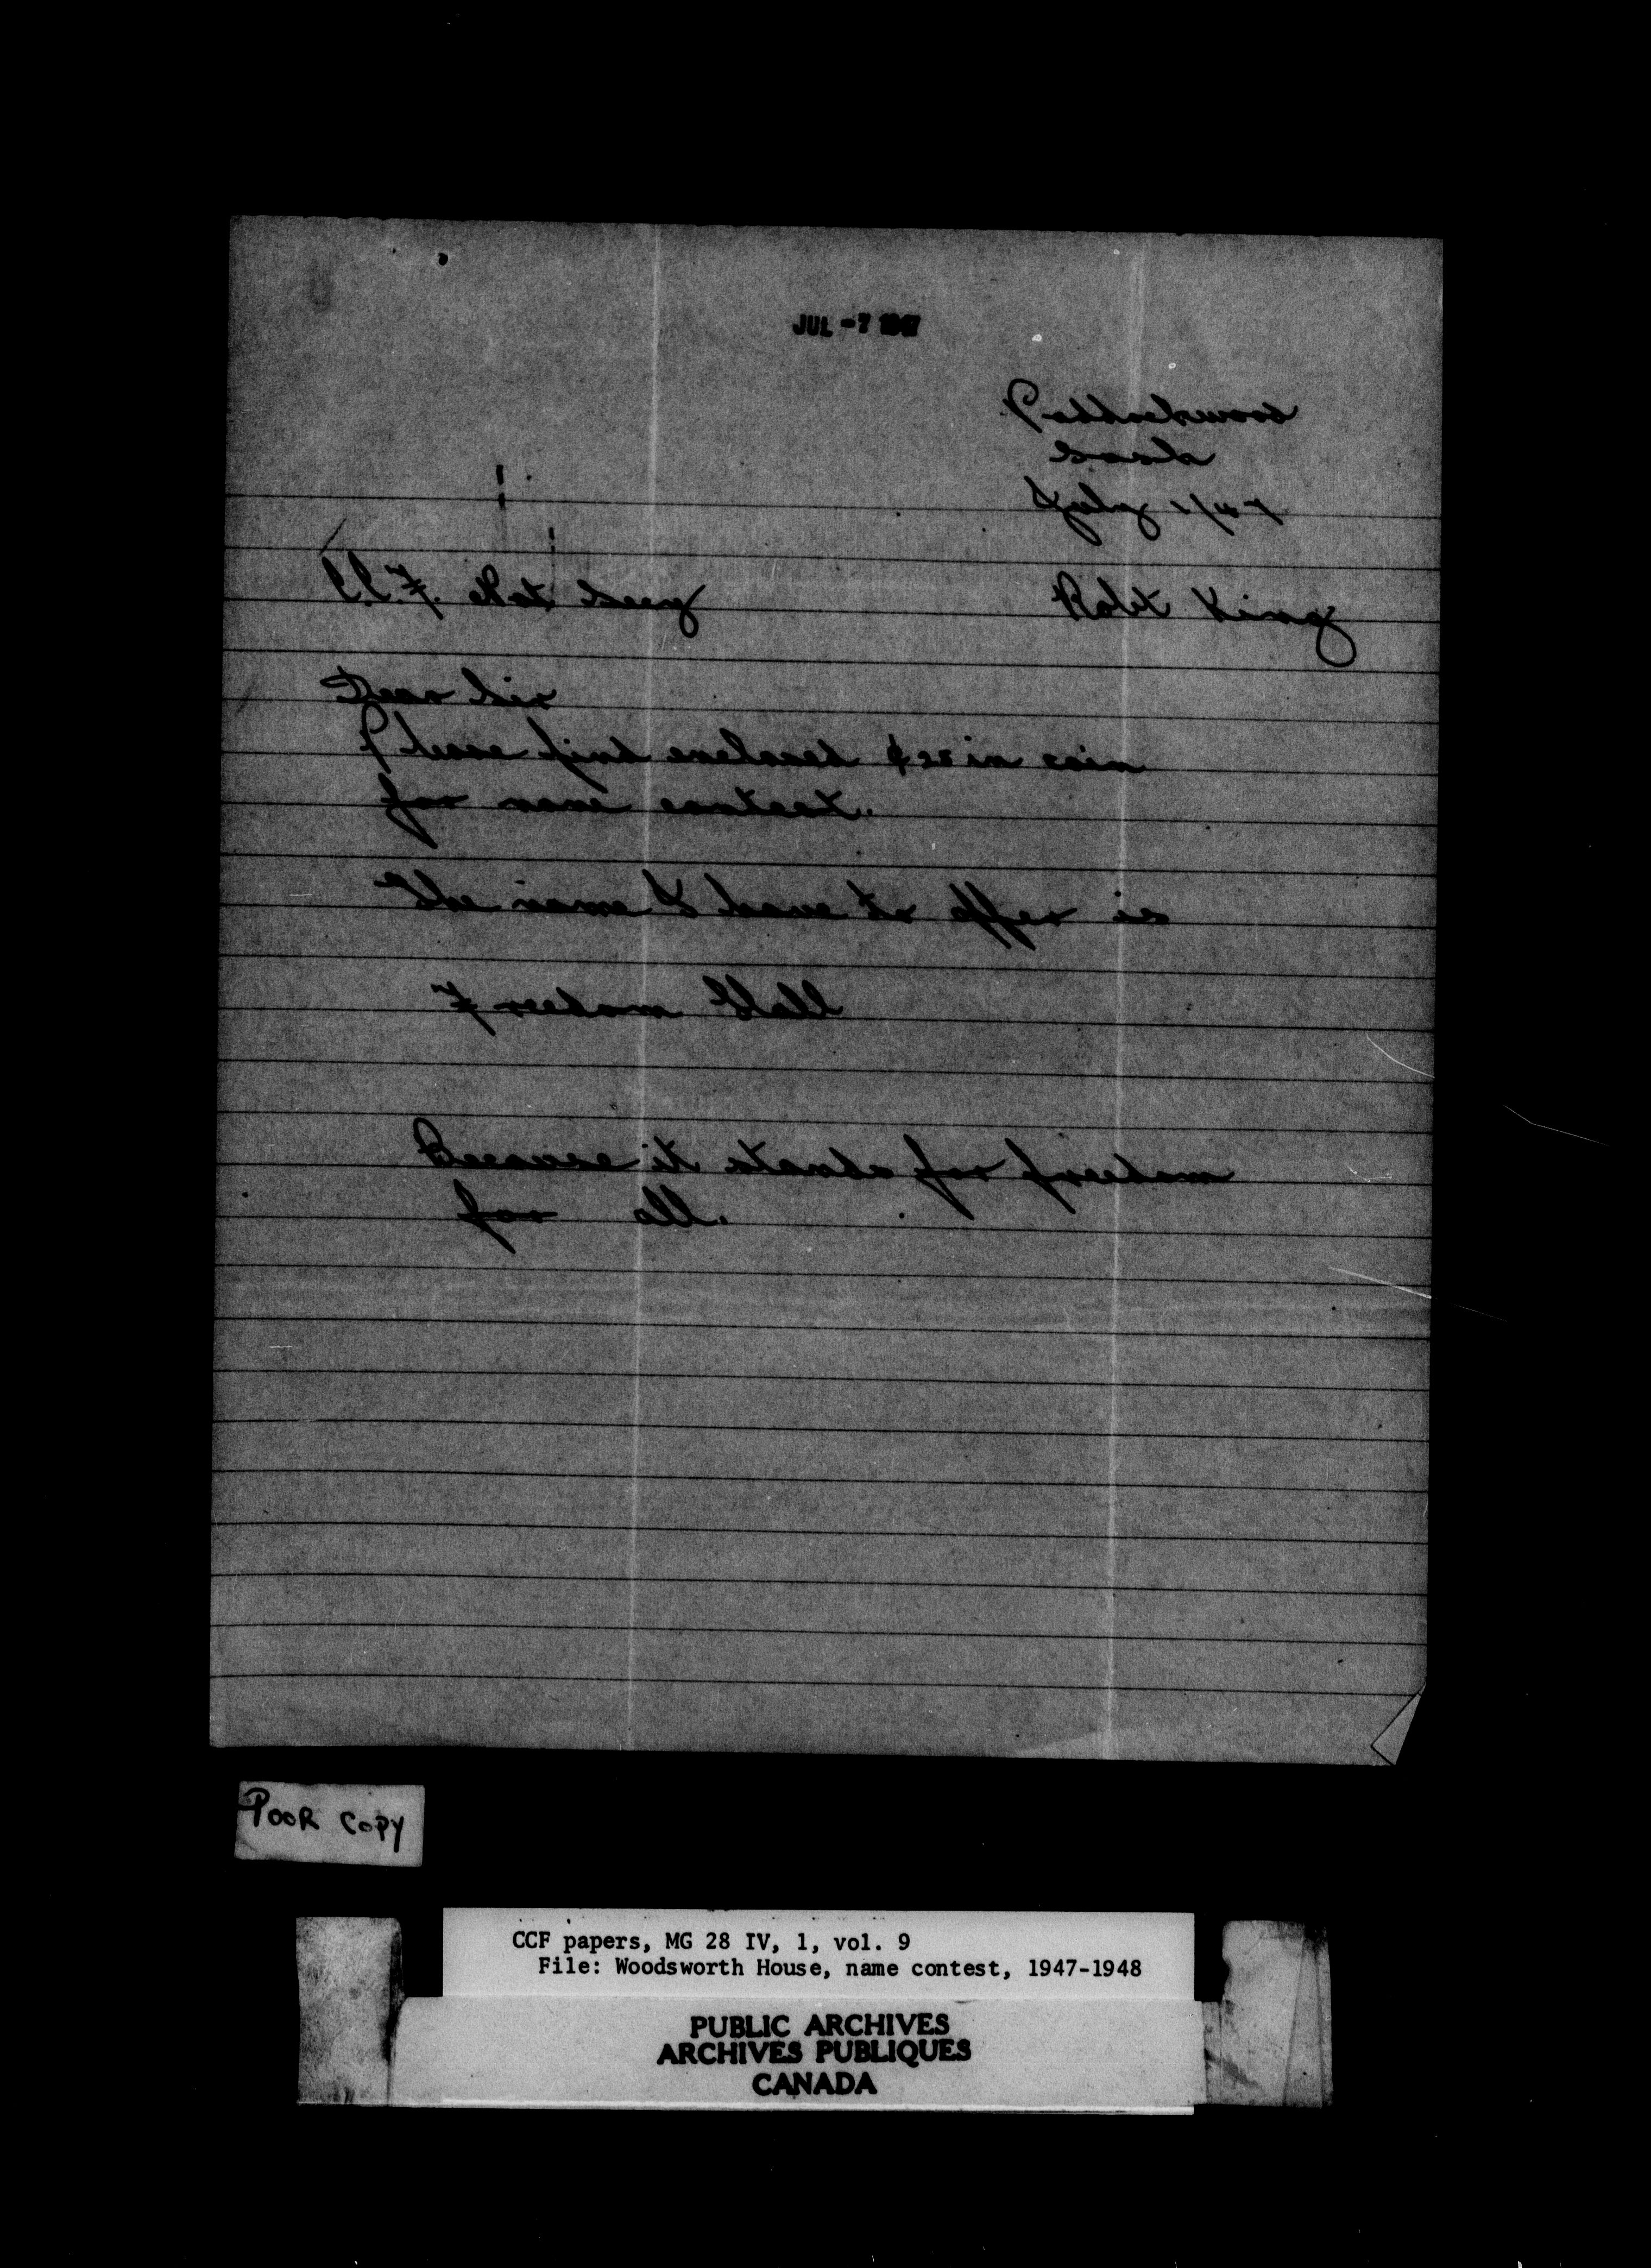 JUL -7 1947
Paddockwood
Sask
July 1/47
C.C.F. Robt King
Dear Sir
Please find enclosed in coin
for name contest.
The name I have to offer is
Freedom Hall
Because it stands for freedom
for all.
POOR COPY
CCF papers, MG 28 IV, 1, vol. 9
File: Woodsworth House, name contest, 1947-1948
PUBLIC ARCHIVES
ARCHIVES PUBLIQUES
CANADA